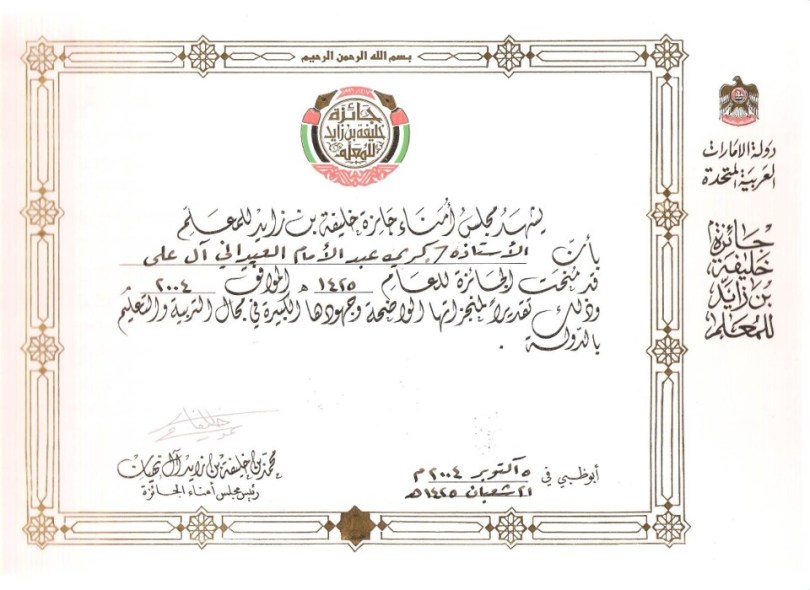 بسم الله الرحمن الرحيم
جائزة
خليفة بن زايد
للمعلم
دولة الامارات
العربية المتحدة
جائزة
خليفة
بن زايد
للمعلم
يشهد مجلس أمناء جائزة خليفة بن زايد للمعلم
بأن الأستاذة / كريمه عبد الأمام العيداني آل علي
قد مُنحت الجائزة للعام ١٤٢٥ هـ الموافق ٢٠٠٤ م
وذلك تقديراً لمنجزاتها الواضحة وجهودها الكبيرة في مجال التربية والتعليم
بالدولة .
أبوظبي في ٥ أكتوبر ٢٠٠٤ م
٢١ شعبان ١٤٢٥ هـ
محمد بن خليفة بن زايد آل نهيان
رئيس مجلس أمناء الجائزة